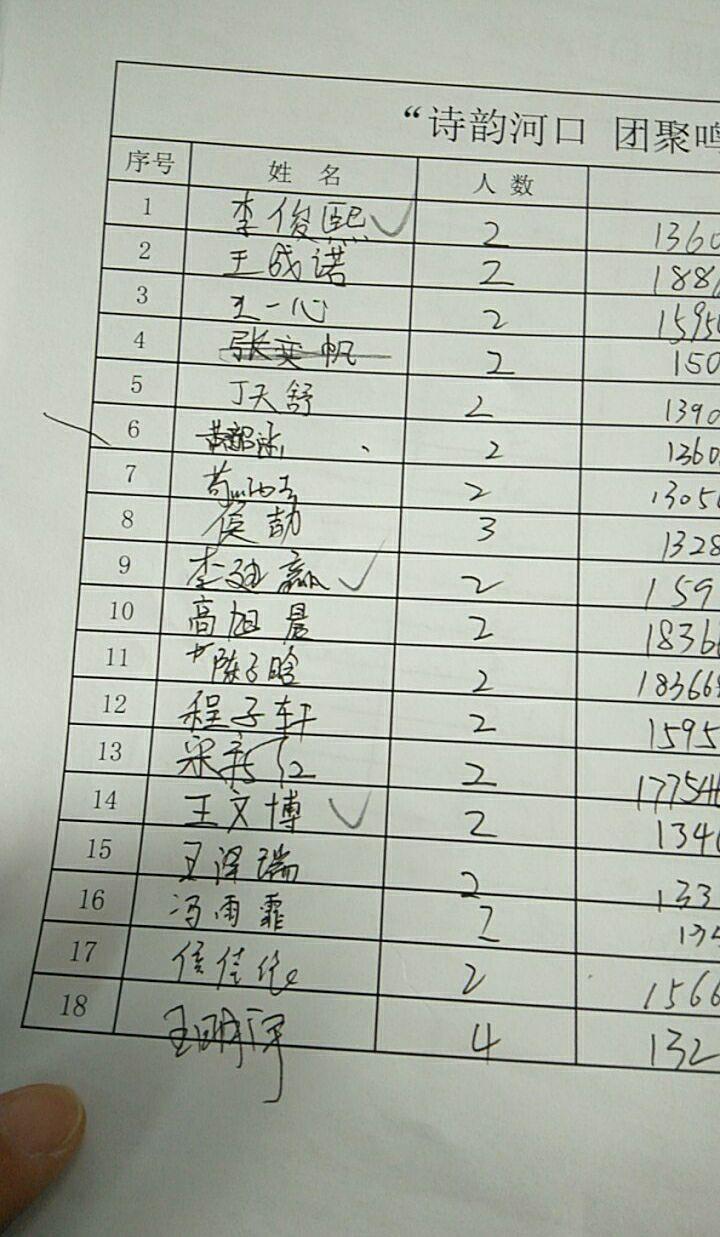 “诗韵河口 团聚鸣
序号 姓 名 人 数
1 李俊熙 2 1360
2 王成诺 2 188
3 王一心 2 1595
4 张奕帆 2 150
5 丁天舒 2 1390
6 2 1360
7 2 1305
8 侯劼 3 1328
9 李迪赢 2 159
10 高旭晨 2 1836
11 陈子晗 2 18366
12 程子轩 2 1595
13 宋 2 17754
14 王文博 2 134
15 王泽瑞 2 133
16 冯雨霏 2 134
17 信佳 2 1566
18 王 4 132